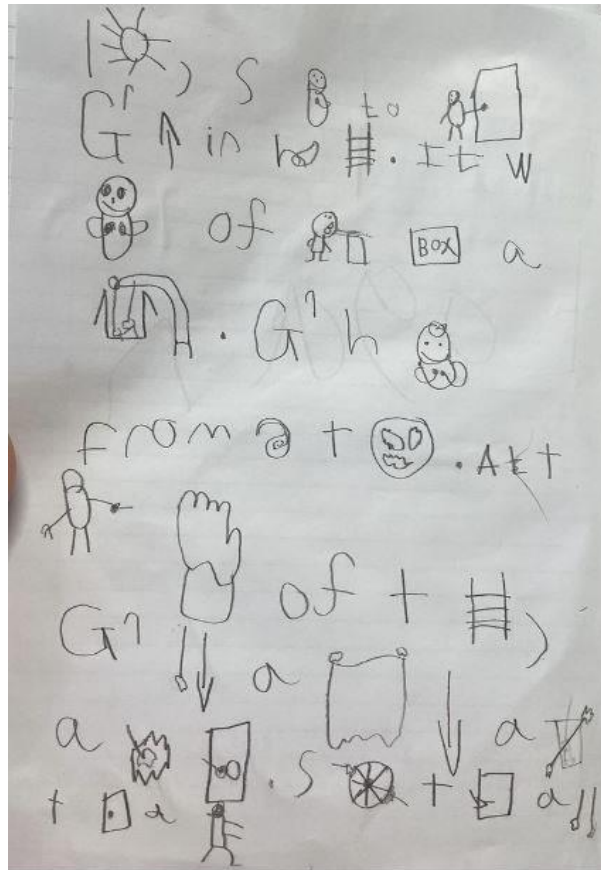 1 , S to
G↑ in h . It w
of BOX a
. G h
from a t . At t
G of t ,
a
a ↓ a
. S t a
t a